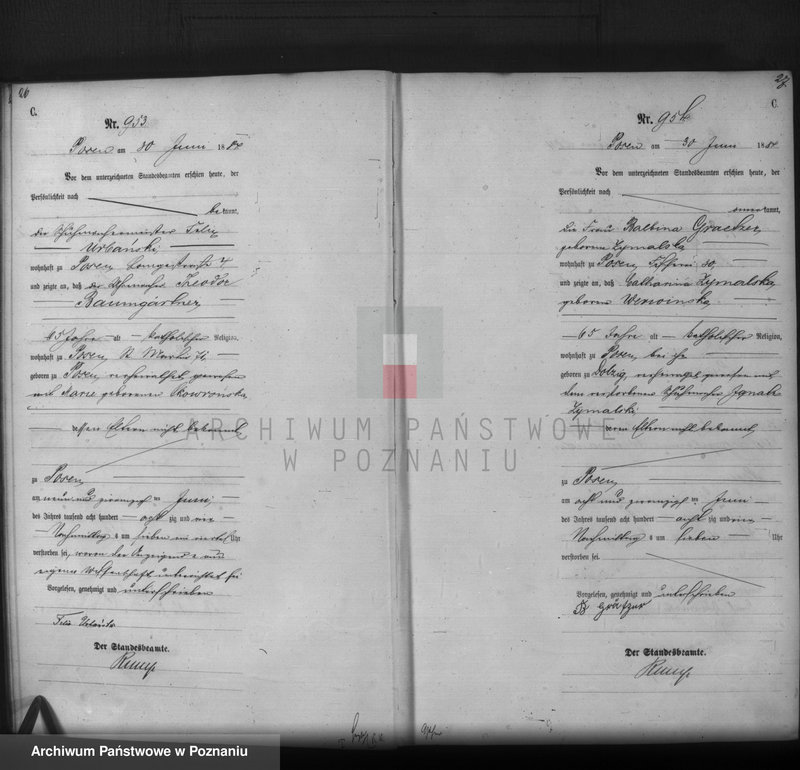 26
C.
Nr. 953
Posen am 30 Juni 1884
Vor dem unterzeichneten Standesbeamten erschien heute, der
Persönlichkeit nach
bekannt,
der Schuhmachermeister Felix
Urbański
wohnhaft zu Posen,
und zeigte an, daß der Schuhmacher Theodor
Baumgärtner
45 Jahre alt katholischer Religion,
wohnhaft zu Posen, St. Martin
geboren zu Posen, verheirathet gewesen
mit Marie geborenen Skowronska
dessen Eltern nicht bekannt,
zu Posen,
am neun und zwanzigsten Juni
des Jahres tausend acht hundert achtzig und vier
Nachmittag um sieben ein viertel Uhr
verstorben sei,
eigener Wissenschaft unterrichtet sei
Vorgelesen, genehmigt und unterschrieben
Felix
Der Standesbeamte.
27
C.
Nr. 954
Posen am 30 Juni 1884
Vor dem unterzeichneten Standesbeamten erschien heute, der
Persönlichkeit nach
kannt,
die Frau Balbina Graetzer,
geborene Zymalska
wohnhaft zu Posen, Fischerei 30,
und zeigte an, daß Catharina Zymalska,
geborene Werwinska,
65 Jahre alt katholischer Religion,
wohnhaft zu Posen bei ihr
geboren zu Dolzig, verheirathet gewesen mit
dem verstorbenen Schuhmacher Ignatz
Zymalski
deren Eltern nicht bekannt,
zu Posen,
am acht und zwanzigsten Juni
des Jahres tausend acht hundert achtzig und vier
Nachmittag um sieben Uhr
verstorben sei.
Vorgelesen, genehmigt und unterschrieben
B grätzer
Der Standesbeamte.
ARCHIWUM PAŃSTWOWE
W POZNANIU
Archiwum Państwowe w Poznaniu